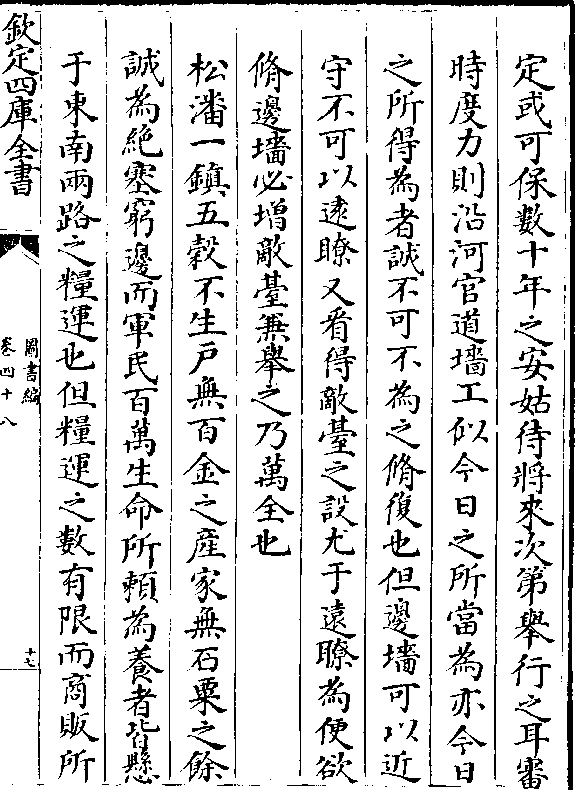 定或可保數十年之安姑待將來次第舉行之耳審
時度力則沿河官道墻工似今日之所當為亦今日
之所得為者誠不可不為之脩復也但邊墻可以近
守不可以遠瞭又看得敵臺之設尤于遠瞭為便欲
脩邊墻必增敵臺兼舉之乃萬全也
松潘一鎮五穀不生戸無百金之産家無石粟之餘
誠為絶塞窮邊而軍民百萬生命所頼為養者皆懸
于東南兩路之糧運也但糧運之數有限而商販所
欽定四庫全書
圖書編
卷四十八
十七